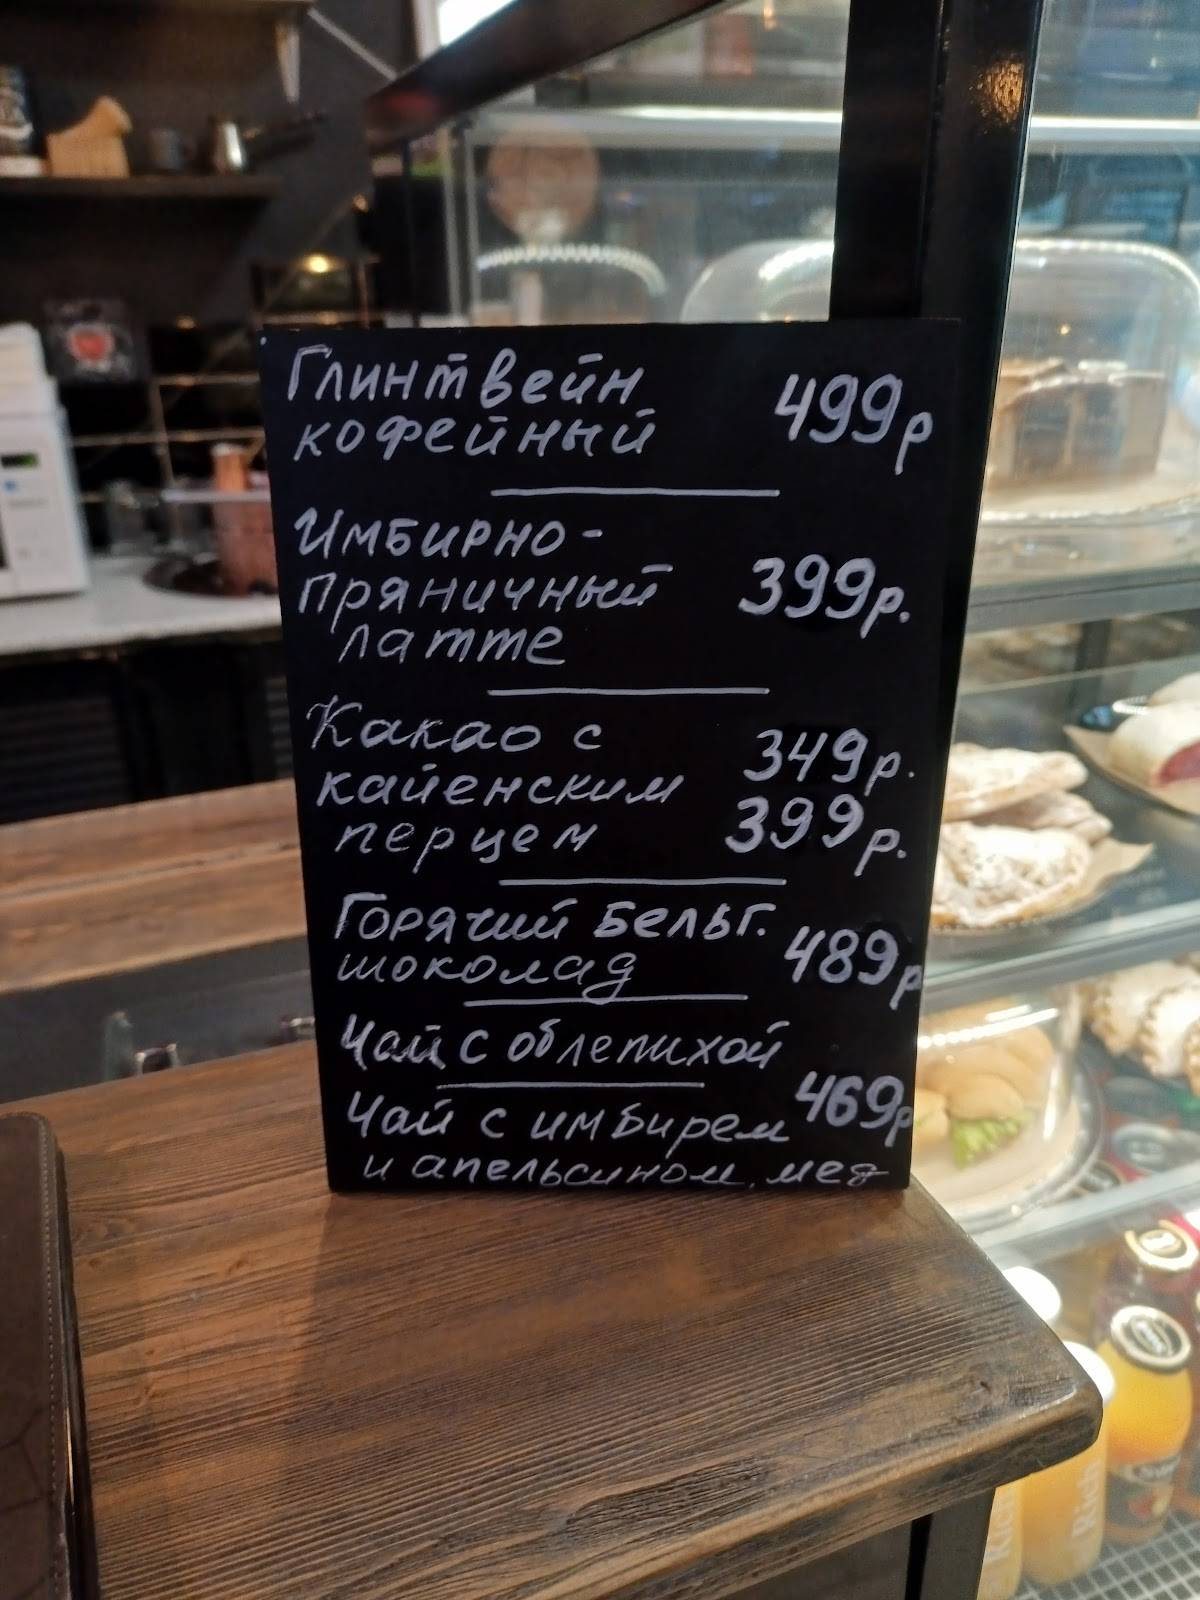 Глинтвейн
кофейный 499р
Имбирно-
пряничный 399р.
латте
Какао с 349р.
кайенским
перцем 399р.
Горячий Бельг.
шоколад 489р
Чай с облепихой
469р
Чай с имбирем
и апельсином, мед
Rich
Rich